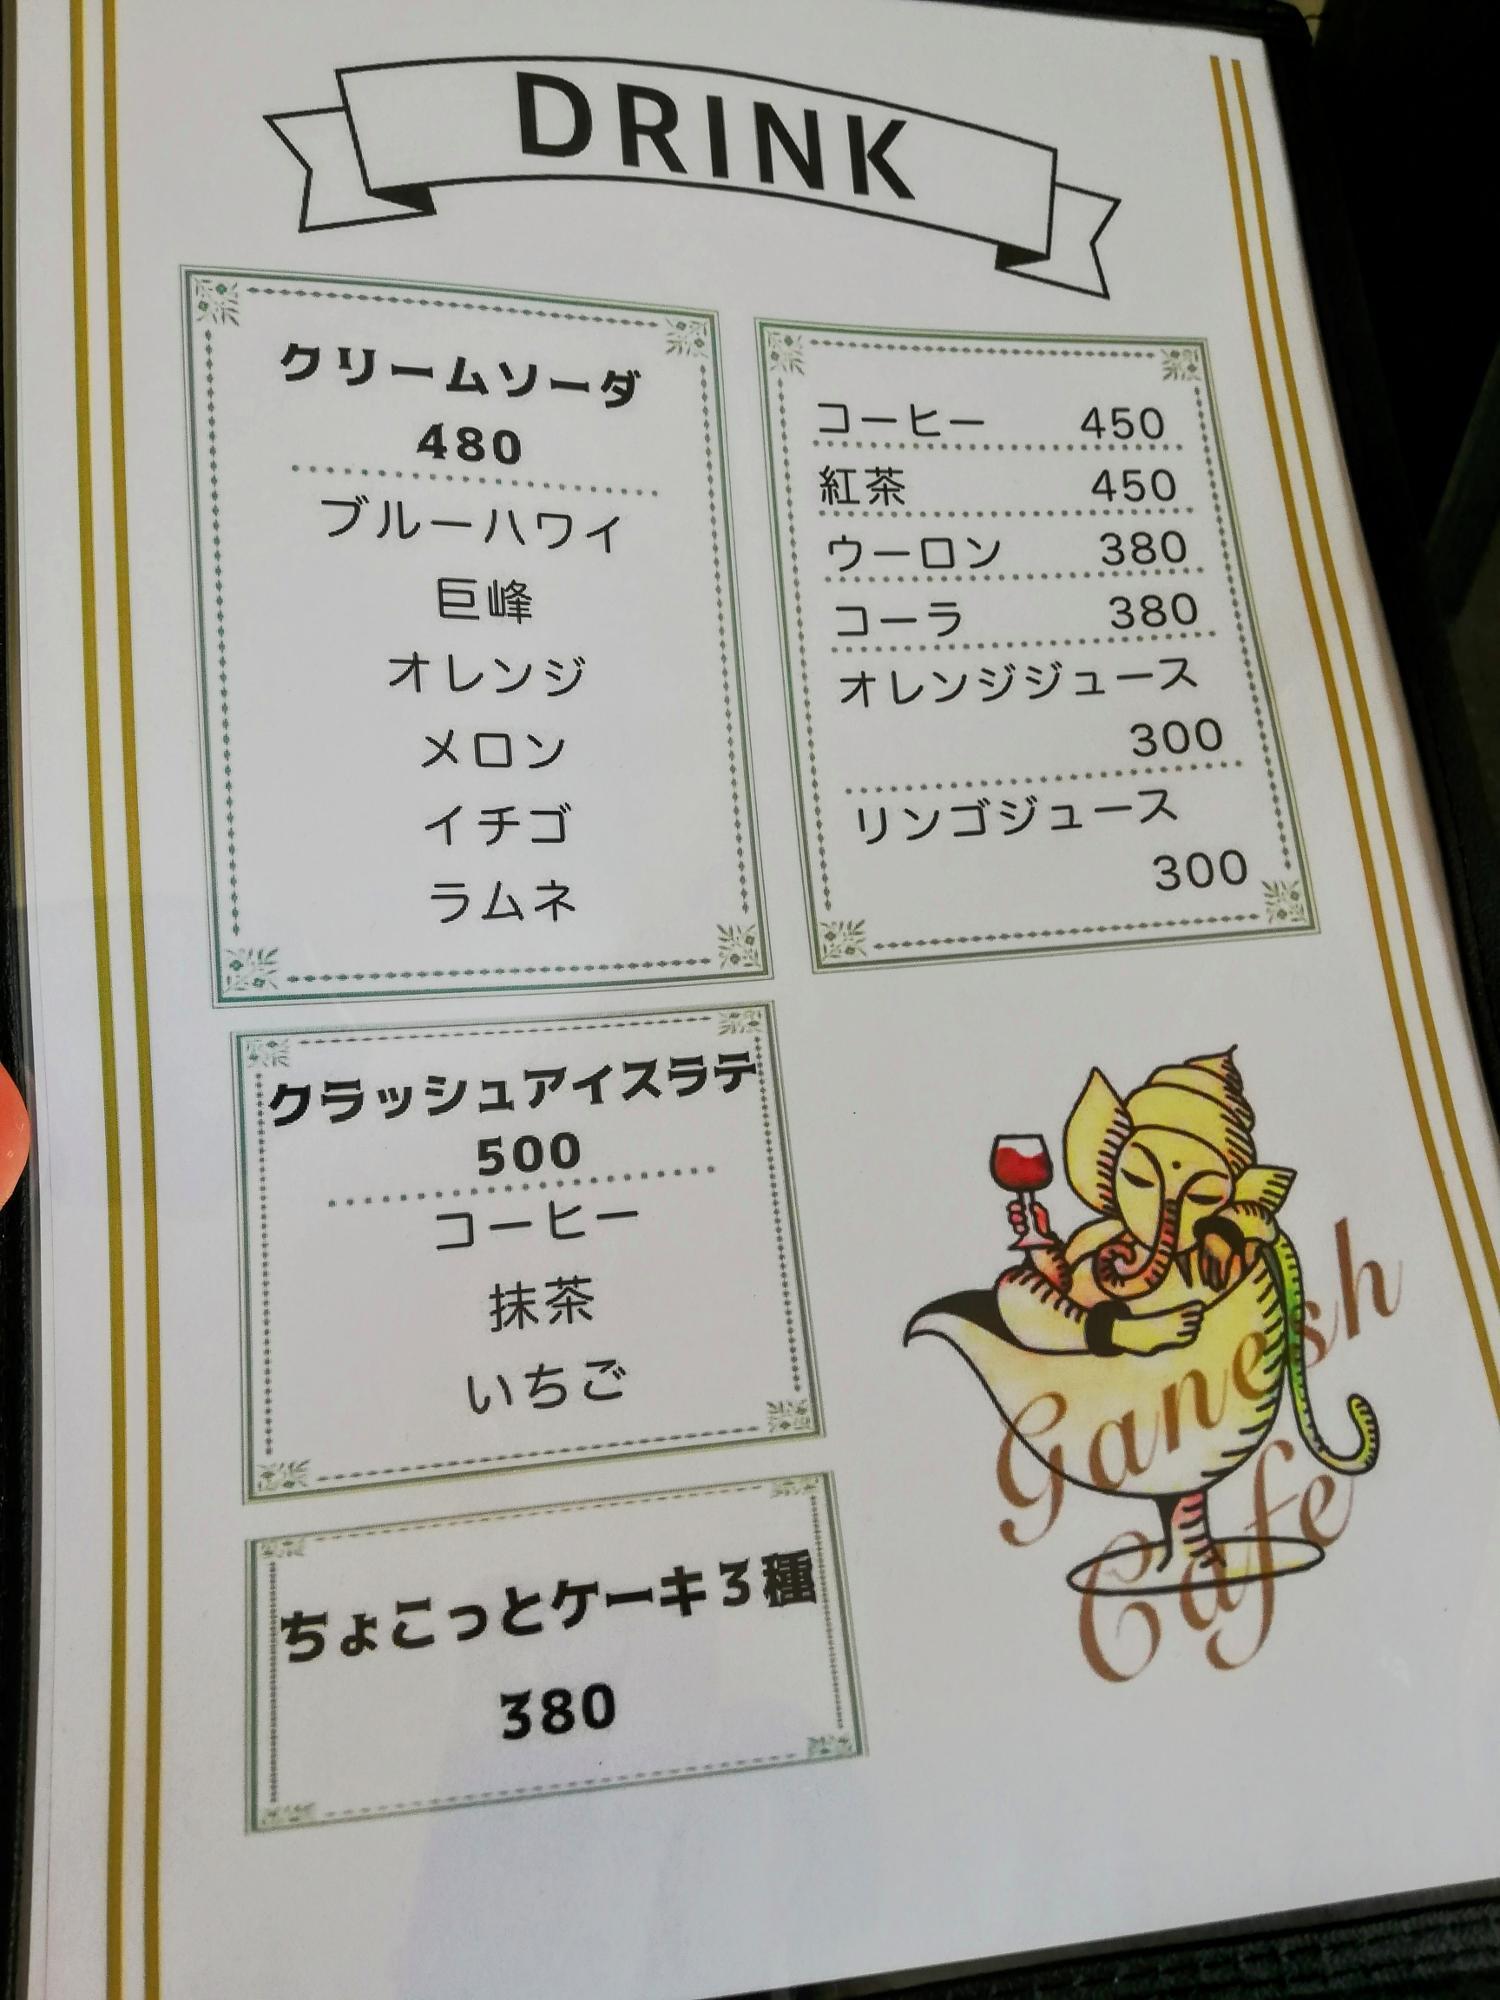 DRINK
クリームソーダ
480
ブルーハワイ
巨峰
オレンジ
メロン
イチゴ
ラムネ
コーヒー 450
紅茶 450
ウーロン 380
コーラ 380
オレンジジュース
300
リンゴジュース
300
クラッシュアイスラテ
500
コーヒー
抹茶
いちご
ちょこっとケーキ3種
380
Ganesh
Cafe